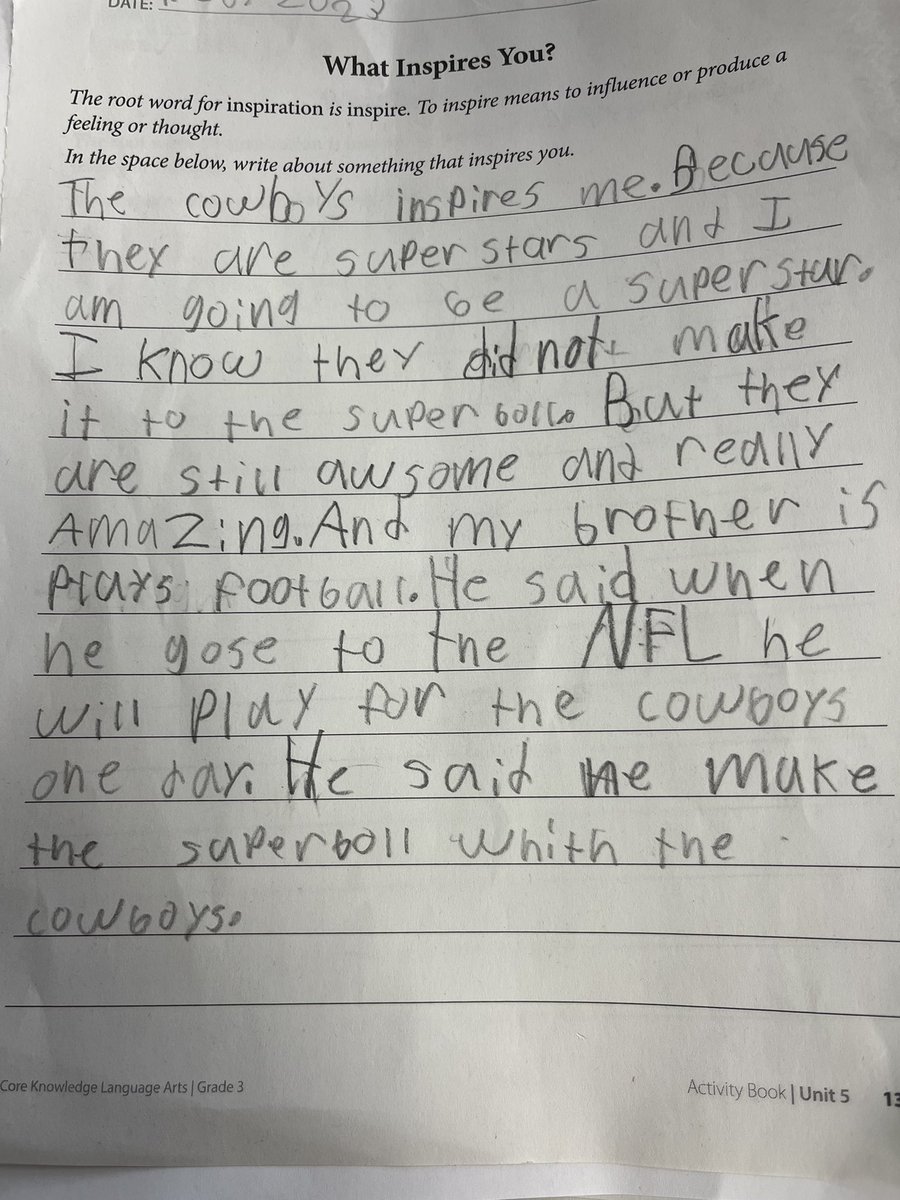 DATE: 2023
What Inspires You?
The root word for inspiration is inspire. To inspire means to influence or produce a
feeling or thought.
In the space below, write about something that inspires you.
The cowboys inspires me. Because
they are super stars and I
am going to be a super star.
I know they did not make
it to the super boll. But they
are still awsome and really
Amazing. And my brother is
Plays football. He said when
he gose to the NFL he
will play for the cowboys
one day. He said He make
the superboll whith the
cowboys.
Core Knowledge Language Arts | Grade 3
Activity Book | Unit 5 13